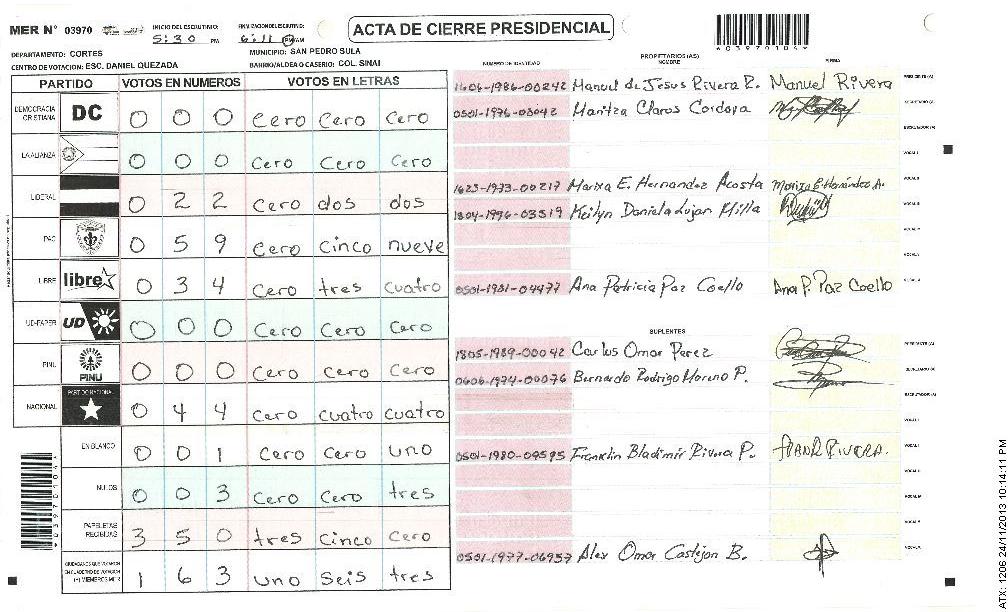 MER N° 03970
INICIO DEL ESCRUTINIO: 5:30 PM
FINALIZACION ESCRUTINIO: 6:11 PM/AM
ACTA DE CIERRE PRESIDENCIAL
*0397010４*
DEPARTAMENTO: CORTES
MUNICIPIO: SAN PEDRO SULA
CENTRO DE VOTACION: ESC. DANIEL QUEZADA
BARRIO/ALDEA O CASERIO: COL. SINAI
PARTIDO VOTOS EN NUMEROS VOTOS EN LETRAS
DEMOCRACIA CRISTIANA DC 0 0 0 Cero Cero Cero
LA ALIANZA 0 0 0 Cero Cero Cero
LIBERAL 0 2 2 Cero dos dos
PAC 0 5 9 Cero Cinco nueve
LIBRE libre 0 3 4 Cero tres cuatro
UD-FAPER UD 0 0 0 Cero Cero Cero
PINU PINU 0 0 0 Cero Cero Cero
NACIONAL PARTIDO NACIONAL 0 4 4 Cero cuatro cuatro
EN BLANCO 0 0 1 Cero Cero uno
NULOS 0 0 3 Cero Cero tres
PAPELETAS RECIBIDAS 3 5 0 tres Cinco Cero
CIUDADANOS QUE VOTARON EN CUADERNO DE VOTACION (+) MIEMBROS MER 1 6 3 uno Seis tres
PROPIETARIOS (AS)
NUMERO DE IDENTIDAD NOMBRE FIRMA
1606-1986-00242 Manuel de Jesus Rivera R. Manuel Rivera PRESIDENTE (A)
0501-1976-03042 Maritza Claros Cordova SECRETARIO (A)
ESCRUTADOR (A)
VOCAL I
1623-1973-00217 Marixa E. Hernandez Acosta Marixa E. Hernández A. VOCAL II
1804-1996-03519 Keilyn Daniela Lujan Milla VOCAL III
VOCAL IV
VOCAL V
0501-1981-04477 Ana Patricia Paz Coello Ana P. Paz Coello
SUPLENTES
1805-1989-00042 Carlos Omar Perez PRESIDENTE (A)
0606-1974-00076 Bernardo Rodrigo Moreno P. SECRETARIO (A)
ESCRUTADOR (A)
VOCAL I
0501-1980-09595 Franklin Bladimir Rivera P. FRANK RIVERA.
VOCAL III
0501-1977-06957 Alex Omar Castejon B.
*0397010４*
ATX: 1206 24/11/2013 10:14:11 PM